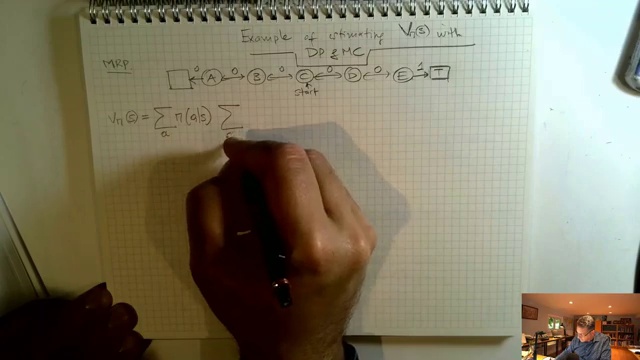 Example of estimating Vπ(s) with
DP & MC
MRP
0 0 0 0 0 1
A B C D E T
start
Vπ(s) = ∑ π(a|s) ∑
a s